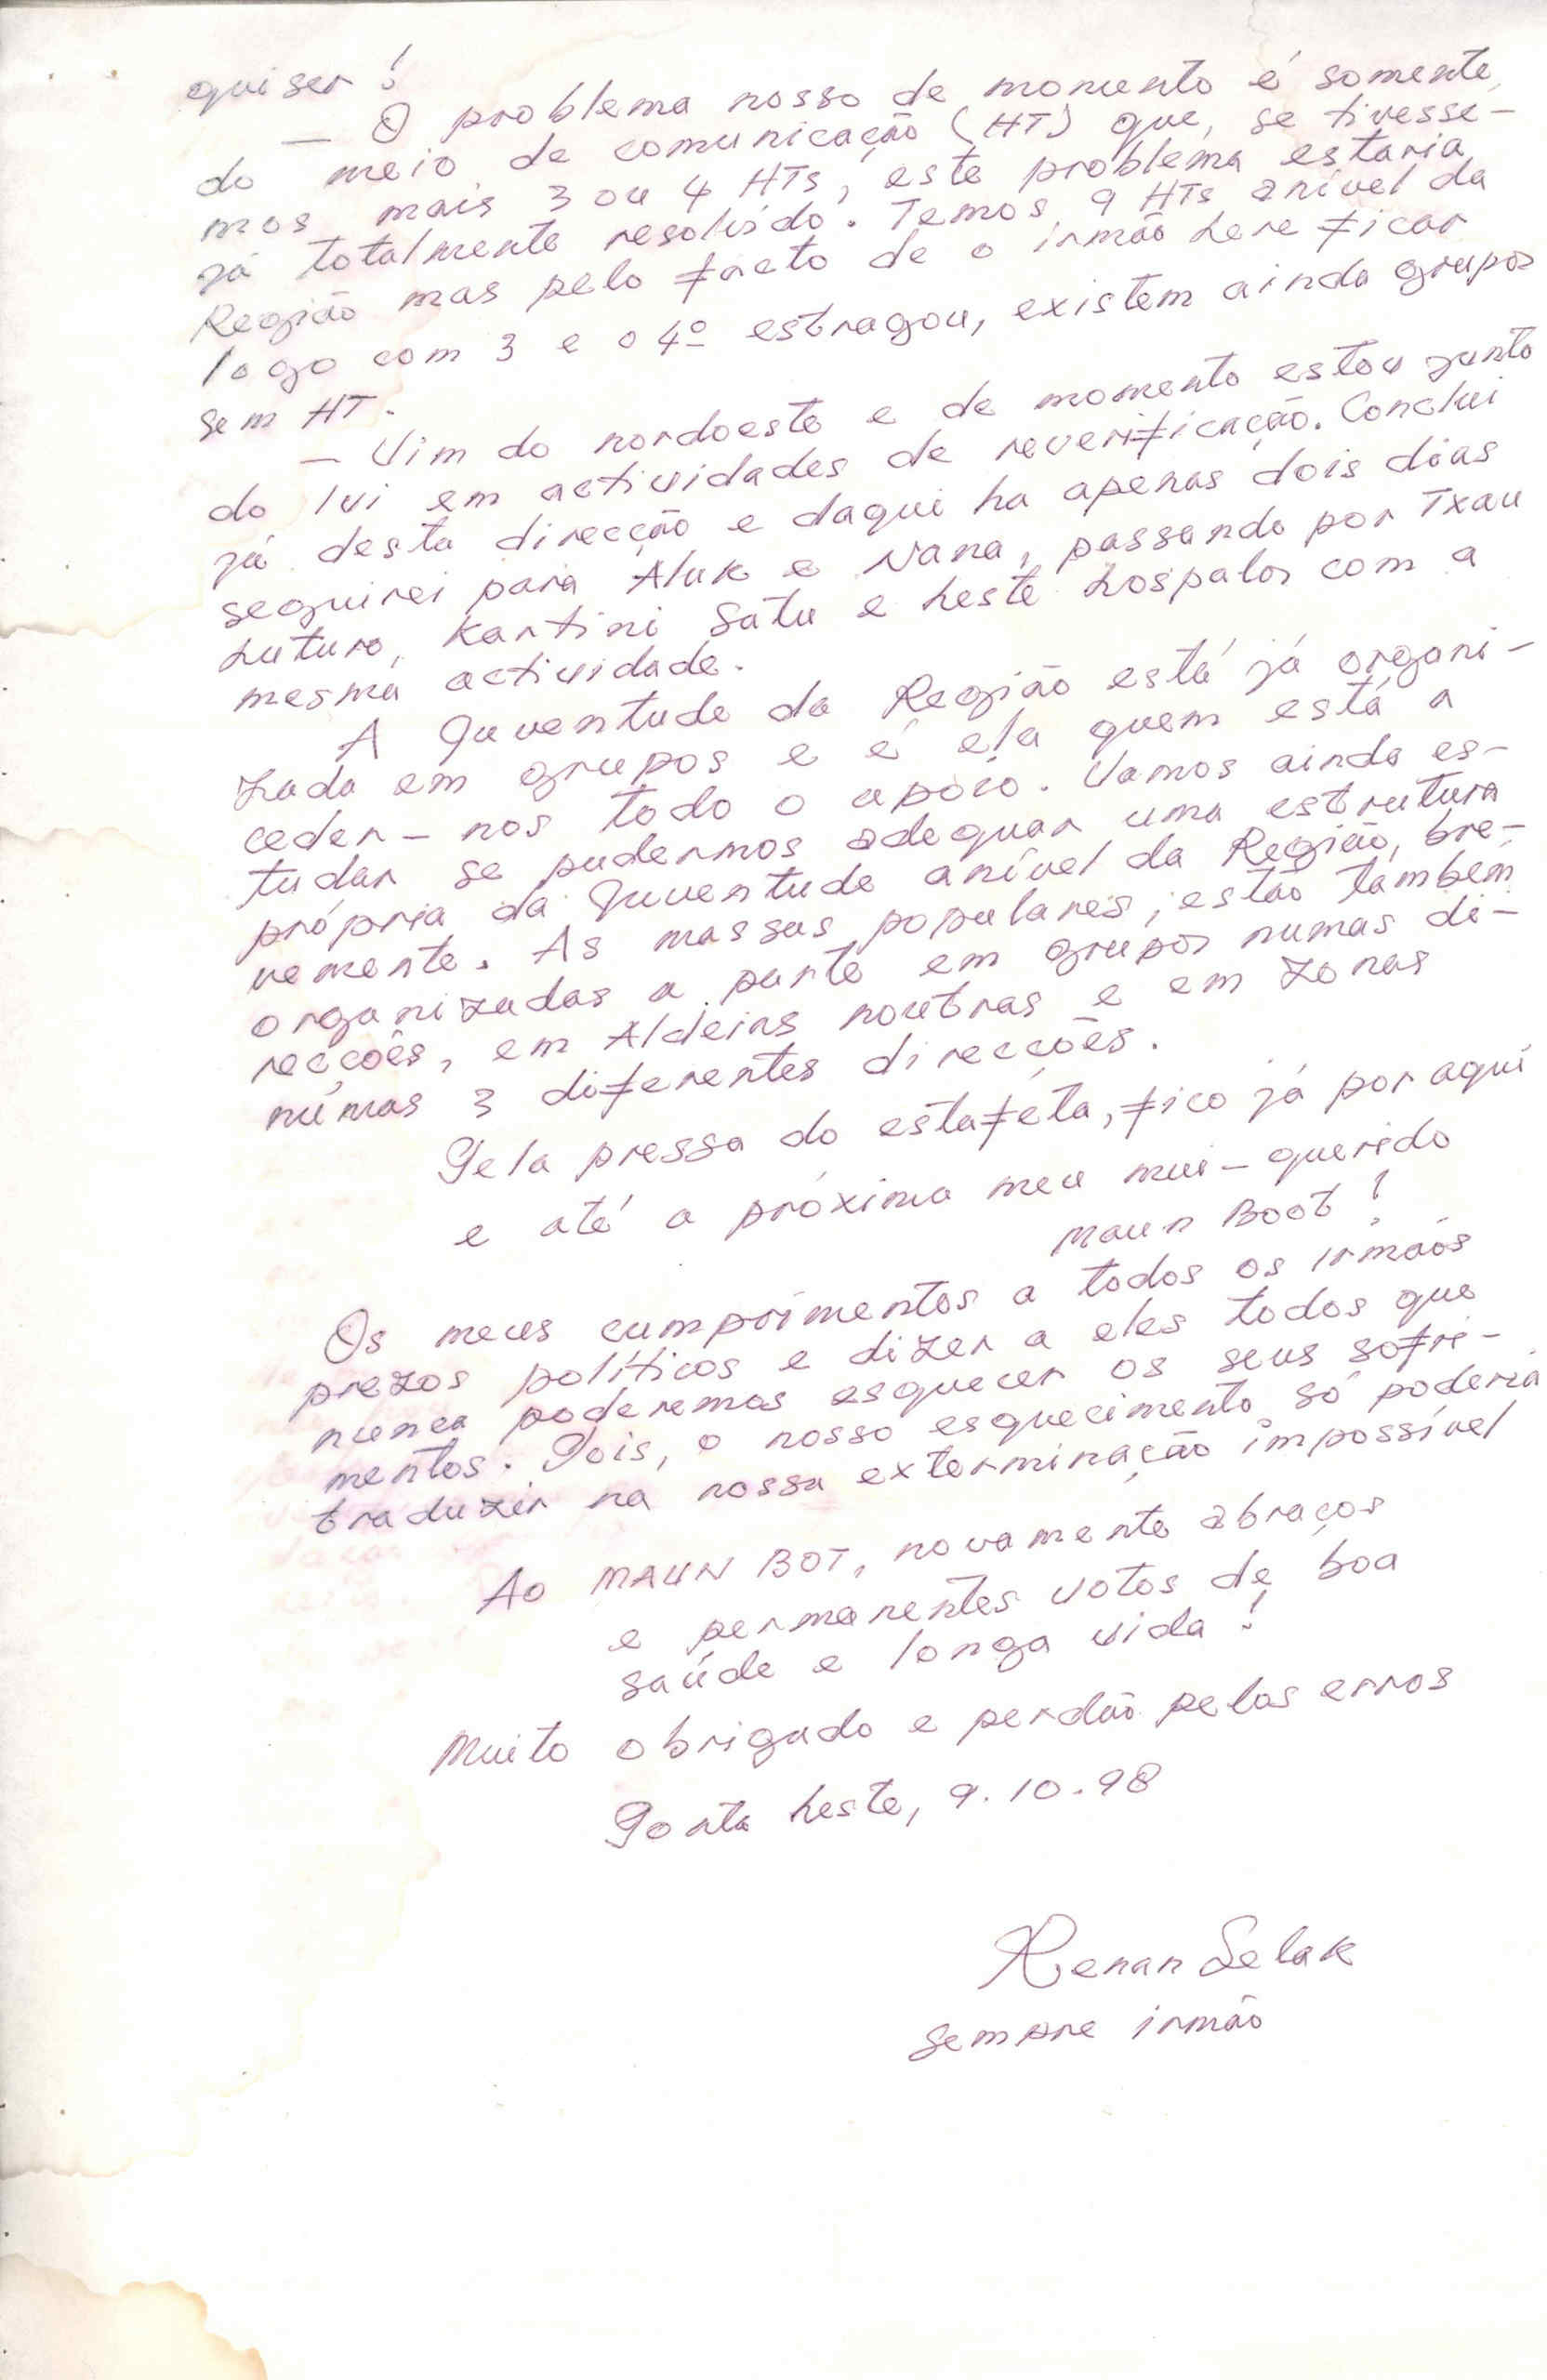 quiser!
— O problema nosso de momento é somente
do meio de comunicação (HT) que, se tivesse-
mos mais 3 ou 4 HTs, este problema estaria
já totalmente resolvido. Temos 9 HTs anível da
Região mas pelo facto de o irmão Lere ficar
logo com 3 e o 4º estragou, existem ainda grupos
sem HT.
— Vim do nordoeste e de momento estou junto
do lui em actividades de reverificação. Conclui
já desta direcção e daqui ha apenas dois dias
seguirei para Aluk e Nana, passando por Txau
Luturo, Kartini Satu e Leste Lospalos com a
mesma actividade.
A Juventude da Região está já organi-
zada em grupos e é ela quem está a
ceder-nos todo o apoio. Vamos ainda es-
tudar se pudermos adequar uma estrutura
própria da Juventude anível da Região, bre-
vemente. As massas populares, estão também
organizadas a parte em grupos numas di-
recções, em Aldeias noutras e em zonas
numas 3 diferentes direcções.
Pela pressa do estafeta, fico já por aqui
e até a próxima meu mui-querido
Maun Boot!
Os meus cumprimentos a todos os irmãos
prezos políticos e dizer a eles todos que
nunca poderemos esquecer os seus sofri-
mentos. Pois, o nosso esquecimento só poderia
traduzir na nossa exterminação impossível
Ao MAUN BOT, novamente abraços
e permanentes votos de boa
saúde e longa vida!
Muito obrigado e perdão pelos erros
Ponta Leste, 9.10.98
Renan Selak
sempre irmão